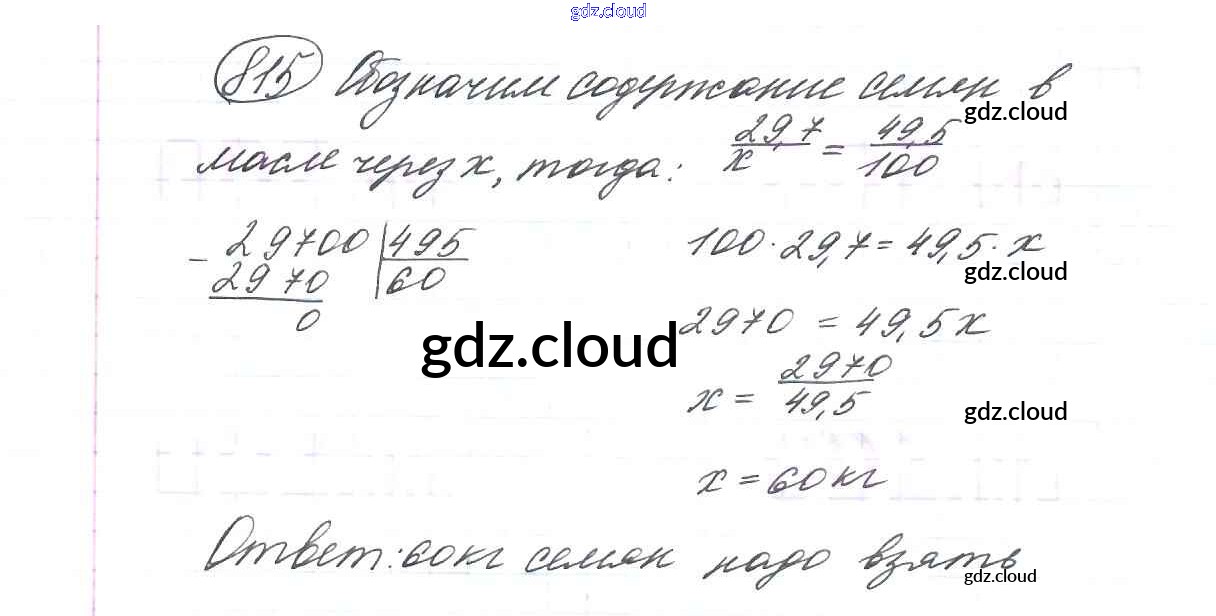 gdz.cloud
815 Обозначим содержание семян в
gdz.cloud
масле через x, тогда: 29,7/x = 49,5/100
- 29700 | 495
2970 | 60
0
100 · 29,7 = 49,5 · x
gdz.cloud
2970 = 49,5x
gdz.cloud
x = 2970/49,5
gdz.cloud
x = 60 кг
Ответ: 60 кг семян надо взять
gdz.cloud